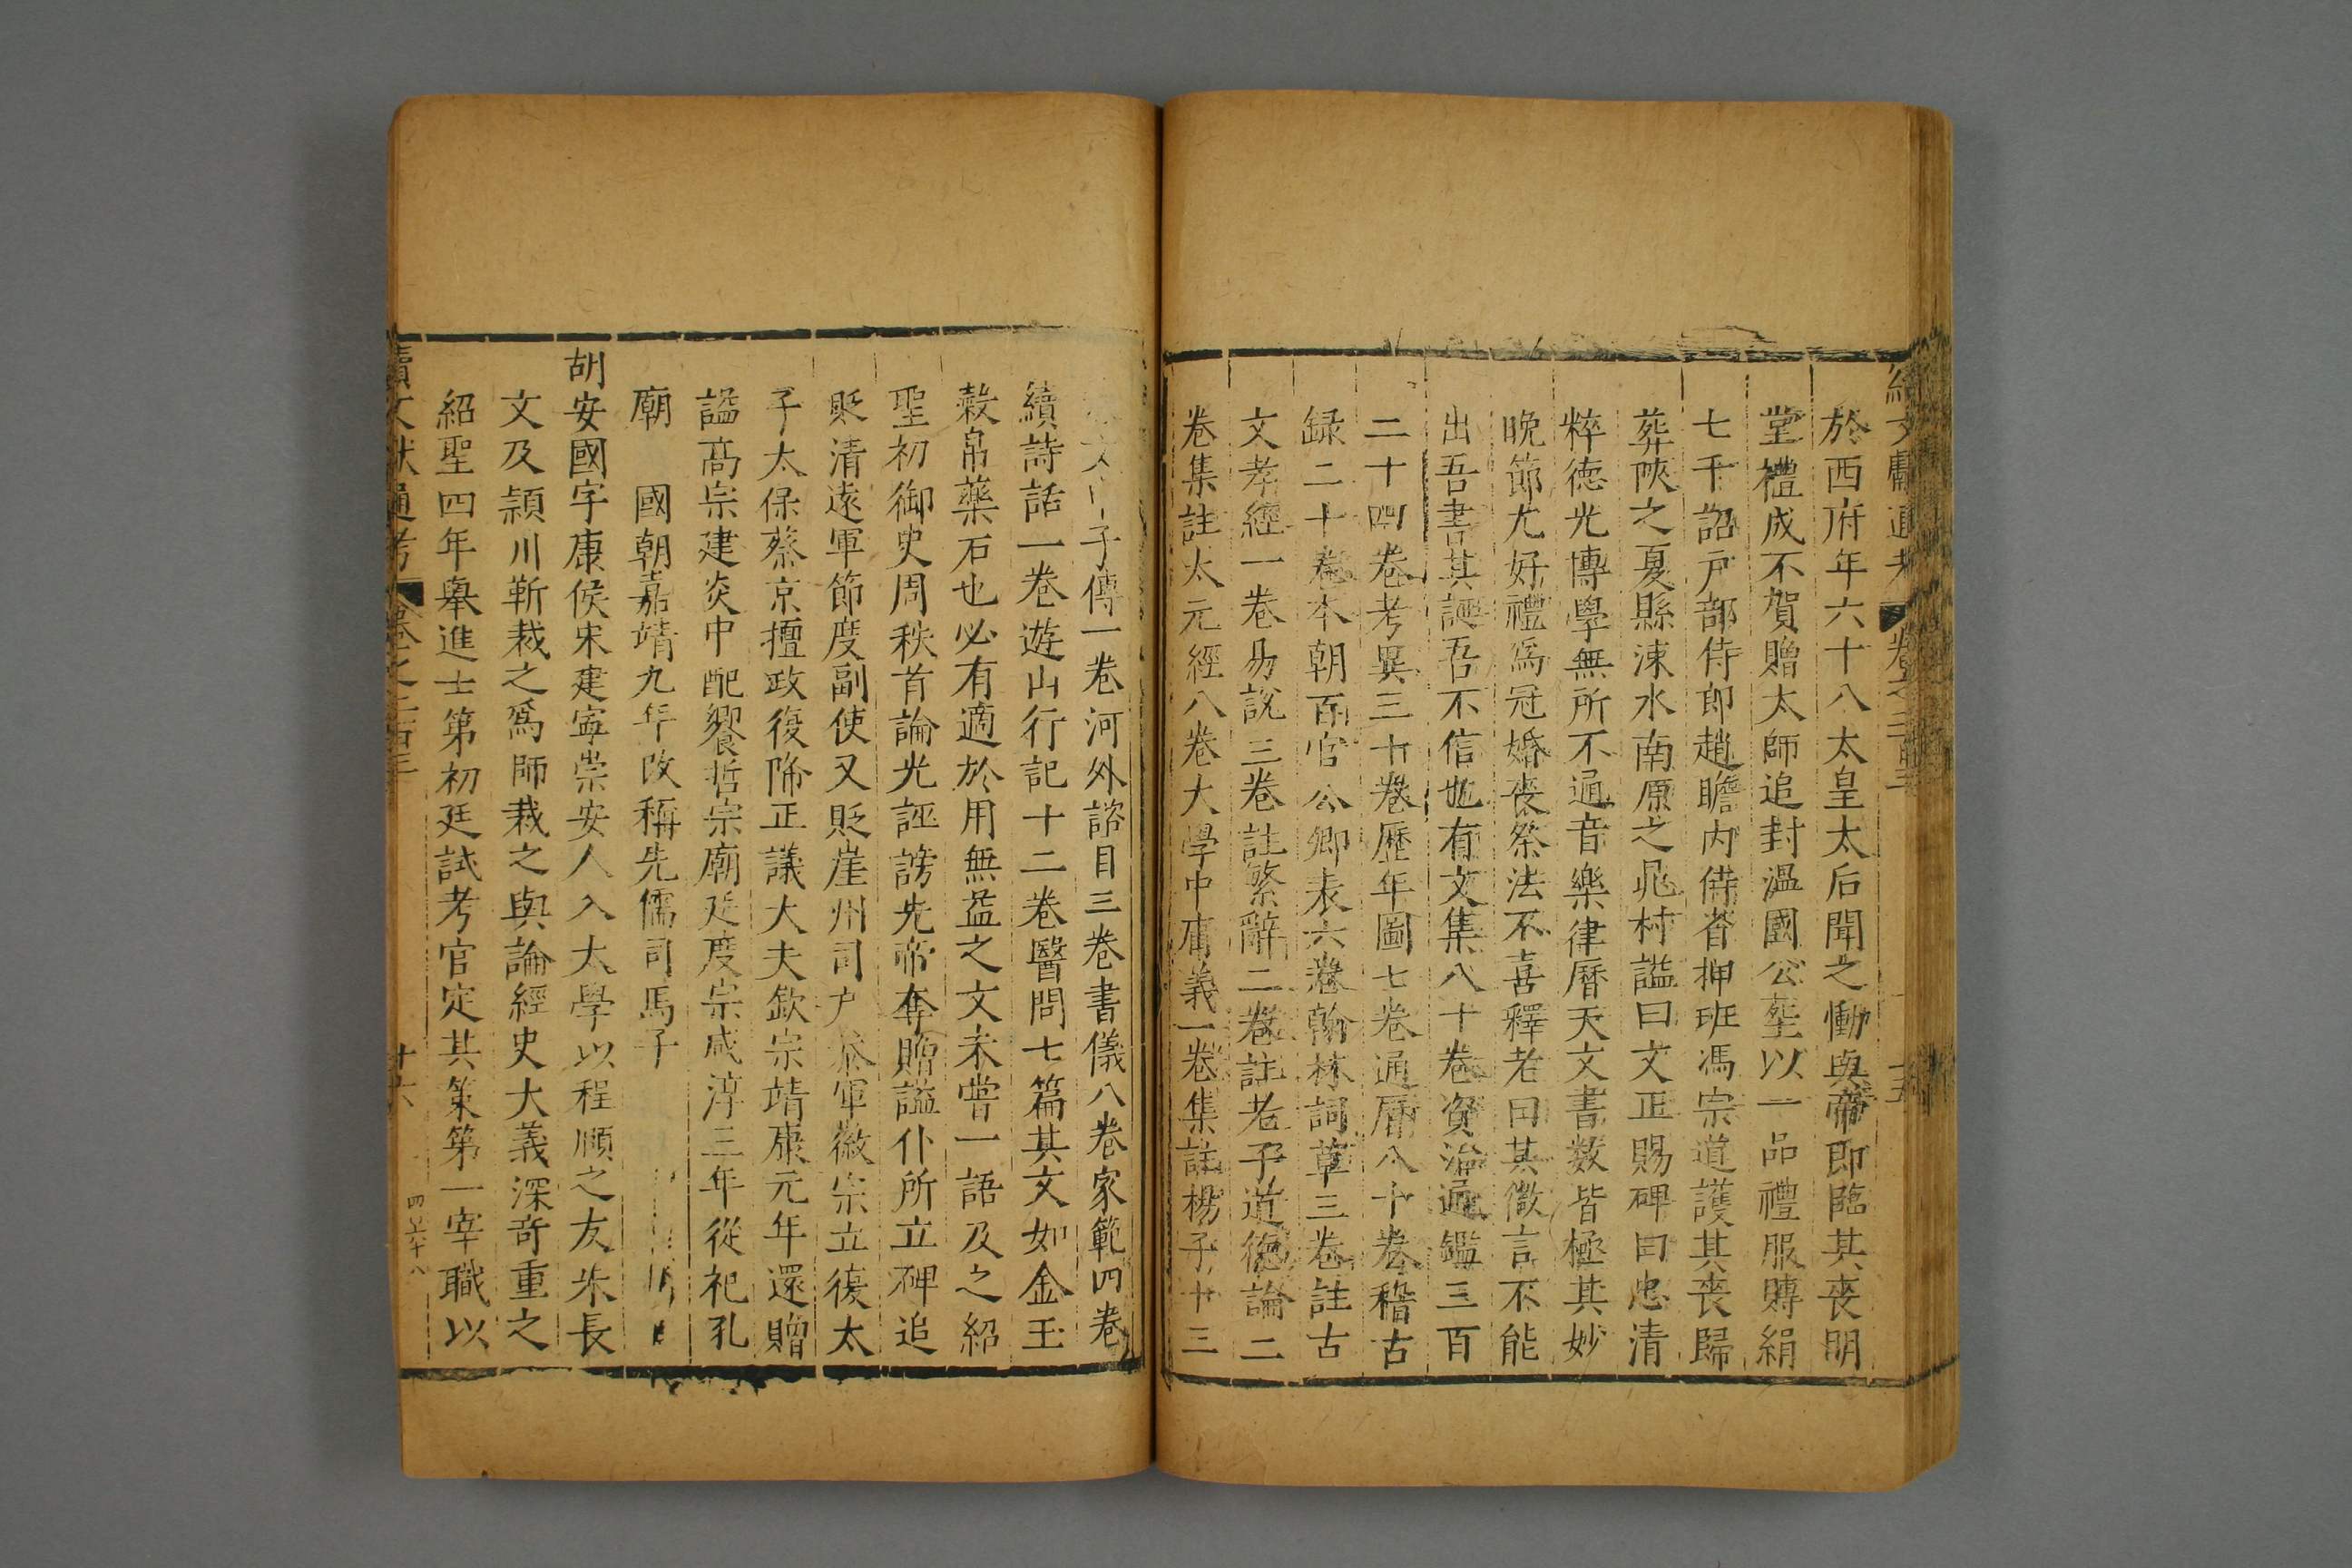 於西府年六十八太皇太后聞之慟與帝即臨其喪明
堂禮成不賀贈太師追封溫國公塟以一品禮服賻絹
七千詔戸部侍郎趙瞻内侍省押班馮宗道護其喪歸
葬陝之夏縣涑水南原之晁村諡曰文正賜碑曰忠清
粹德光博學無所不通音樂律曆天文書数皆極其妙
晩節尤好禮爲冠婚喪祭法不喜釋老曰其微言不能
出吾書其誕吾不信也有文集八十卷資治通鑑三百
二十四卷考異三十卷歷年圖七卷通曆八十卷稽古
録二十卷本朝百官公卿表六卷翰林詞草三卷註古
文孝經一卷易說三卷註繫辭二卷註老子道德論二
卷集註太元經八卷大學中庸義一卷集註楊子十三
子傳一卷河外諮目三卷書儀八卷家範四卷
續詩話一卷遊山行記十二卷醫問七篇其文如金玉
穀帛藥石也必有適於用無益之文未嘗一語及之紹
聖初御史周秩首論光誣謗先帝奪贈諡仆所立碑追
貶清遠軍節度副使又貶崖州司戸叅軍徽宗立復太
子太保蔡京擅政復降正議大夫欽宗靖康元年還贈
諡高宗建炎中配饗哲宗廟廷度宗咸淳三年從祀孔
廟　國朝嘉靖九年改稱先儒司馬子
胡安國字康侯宋建寧崇安人入太學以程頤之友朱長
文及頴川靳裁之爲師裁之與論經史大義深奇重之
紹聖四年舉進士第初廷試考官定其策第一宰職以
續文獻通考 卷之二百三 十六